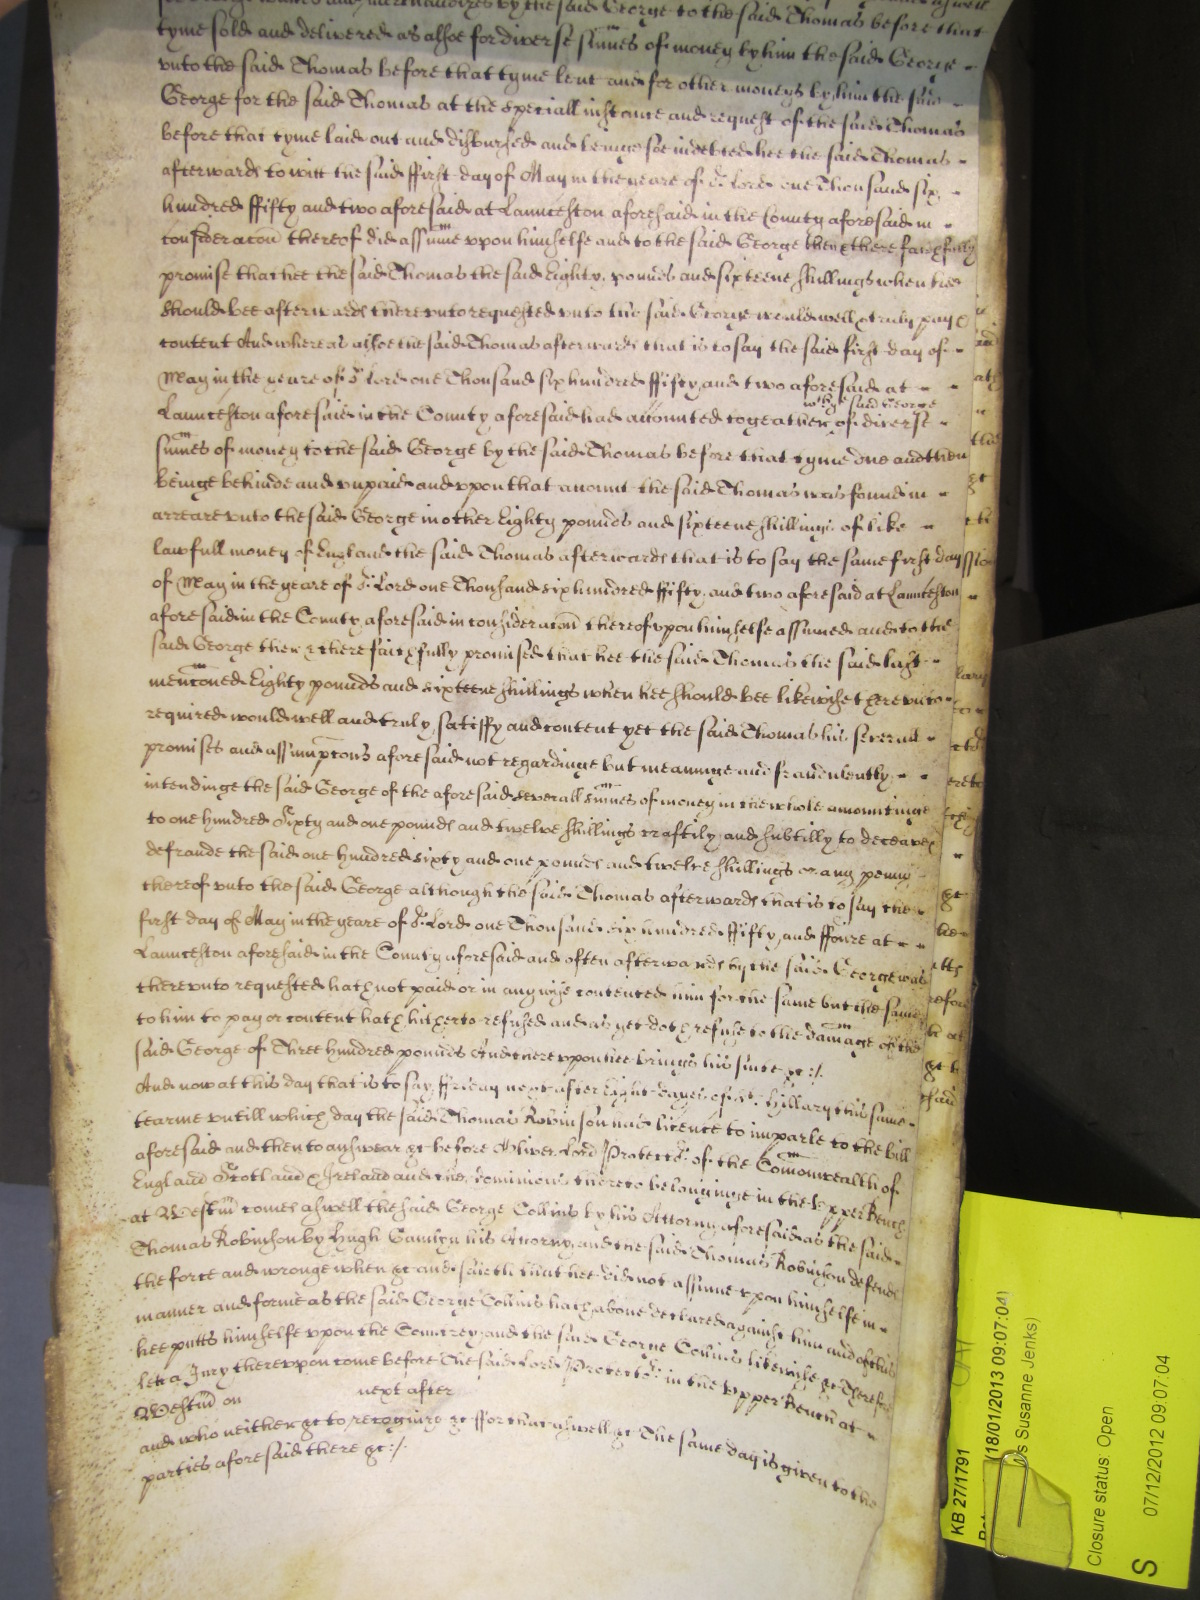 wares and merchandizes by the said George to the said Thomas before that
tyme sold and delivered as alsoe for diverse sumes of money by him the said George
vnto the said Thomas before that tyme lent and for other moneys by him the said
George for the said Thomas at the speciall instance and request of the said Thomas
before that tyme laid out and disbursed and beinge soe indebted hee the said Thomas
afterwards to witt the said ffirst day of May in the yeare of or Lord one Thousand six
hundred ffifty and two aforesaid at Launceston aforesaid in the County aforesaid in
consideracon thereof did assume vpon himselfe and to the said George then & there faithfully
promise that hee the said Thomas the said Eighty pounds and sixteene shillings when hee
should bee afterwards therevnto requested vnto the said George would well & truly pay &
content And whereas alsoe the said Thomas afterwards that is to say the said first day of
May in the yeare of or Lord one Thousand six hundred ffifty and two aforesaid at
wth ye said George
Launceston aforesaid in the County aforesaid had accounted togeather of diverse
sumes of money to the said George by the said Thomas before that tyme due and then
beinge behinde and vnpaid and vpon that account the said Thomas was found in
arreare vnto the said George in other Eighty pounds and sixteene shillings of like
lawfull money of England the said Thomas afterwards that is to say the same first day
of May in the yeare of or Lord one Thousand six hundred ffifty and two aforesaid at Launceston
aforesaid in the County aforesaid in consideracon thereof vpon himselfe assumed and to the
said George then & there faithfully promised that hee the said Thomas the said last
menconed Eighty pounds and sixteene shillings when hee should bee likewise therevnto
required would well and truly satisfy and content yet the said Thomas his severall
promises and assumptons aforesaid not regardinge but meaninge and fraudulently
intendinge the said George of the aforesaid severall sumes of money in the whole amountinge
to one hundred Sixty and one pounds and twelve shillings craftily and subtilly to deceave &
defraude the said one hundred sixty and one pounds and twelve shillings or any penny
thereof vnto the said George although the said Thomas afterwards that is to say the
first day of May in the yeare of or Lord one Thousand six hundred ffifty and ffoure at
Launceston aforesaid in the County aforesaid and often afterwards by the said George was
therevnto requested hath not paid or in any wise contented him for the same but the same
to him to pay or content hath hitherto refused and as yet doth refuse to the damage of the
said George of Three hundred pounds And therevpon hee brings his suite &c
And now at this day that is to say ffriday next after Eight dayes of St Hillary this same
tearme vntill which day the said Thomas Robinson had licence to imparle to the bill
aforesaid and then to answear &c before Oliver Lord Protector of the Comonwealth of
England Scotland & Ireland and the dominions thereto belonginge in the Vpper Bench
at Westm comes aswell the said George Collins by his Attorny aforesaid as the said
Thomas Robinson by Hugh his Attorny and the said Thomas Robinson defends
the force and wronge when &c and saieth that hee did not assume vpon himselfe in
manner and forme as the said George Collins hath above declared against him and of this
hee putts himselfe vpon the Countrey and the said George Collins likewise &c Therefore
let a Jury therevpon come before the said Lord Protector in the Vpper Bench at
Westm on next after
and who neither &c to recognize &c ffor that aswell &c The same day is given to the
parties aforesaid there &c
KB 27/1791
(18/01/2013 09:07:04)
Susanne Jenks)
Closure status: Open
S 07/12/2012 09:07:04